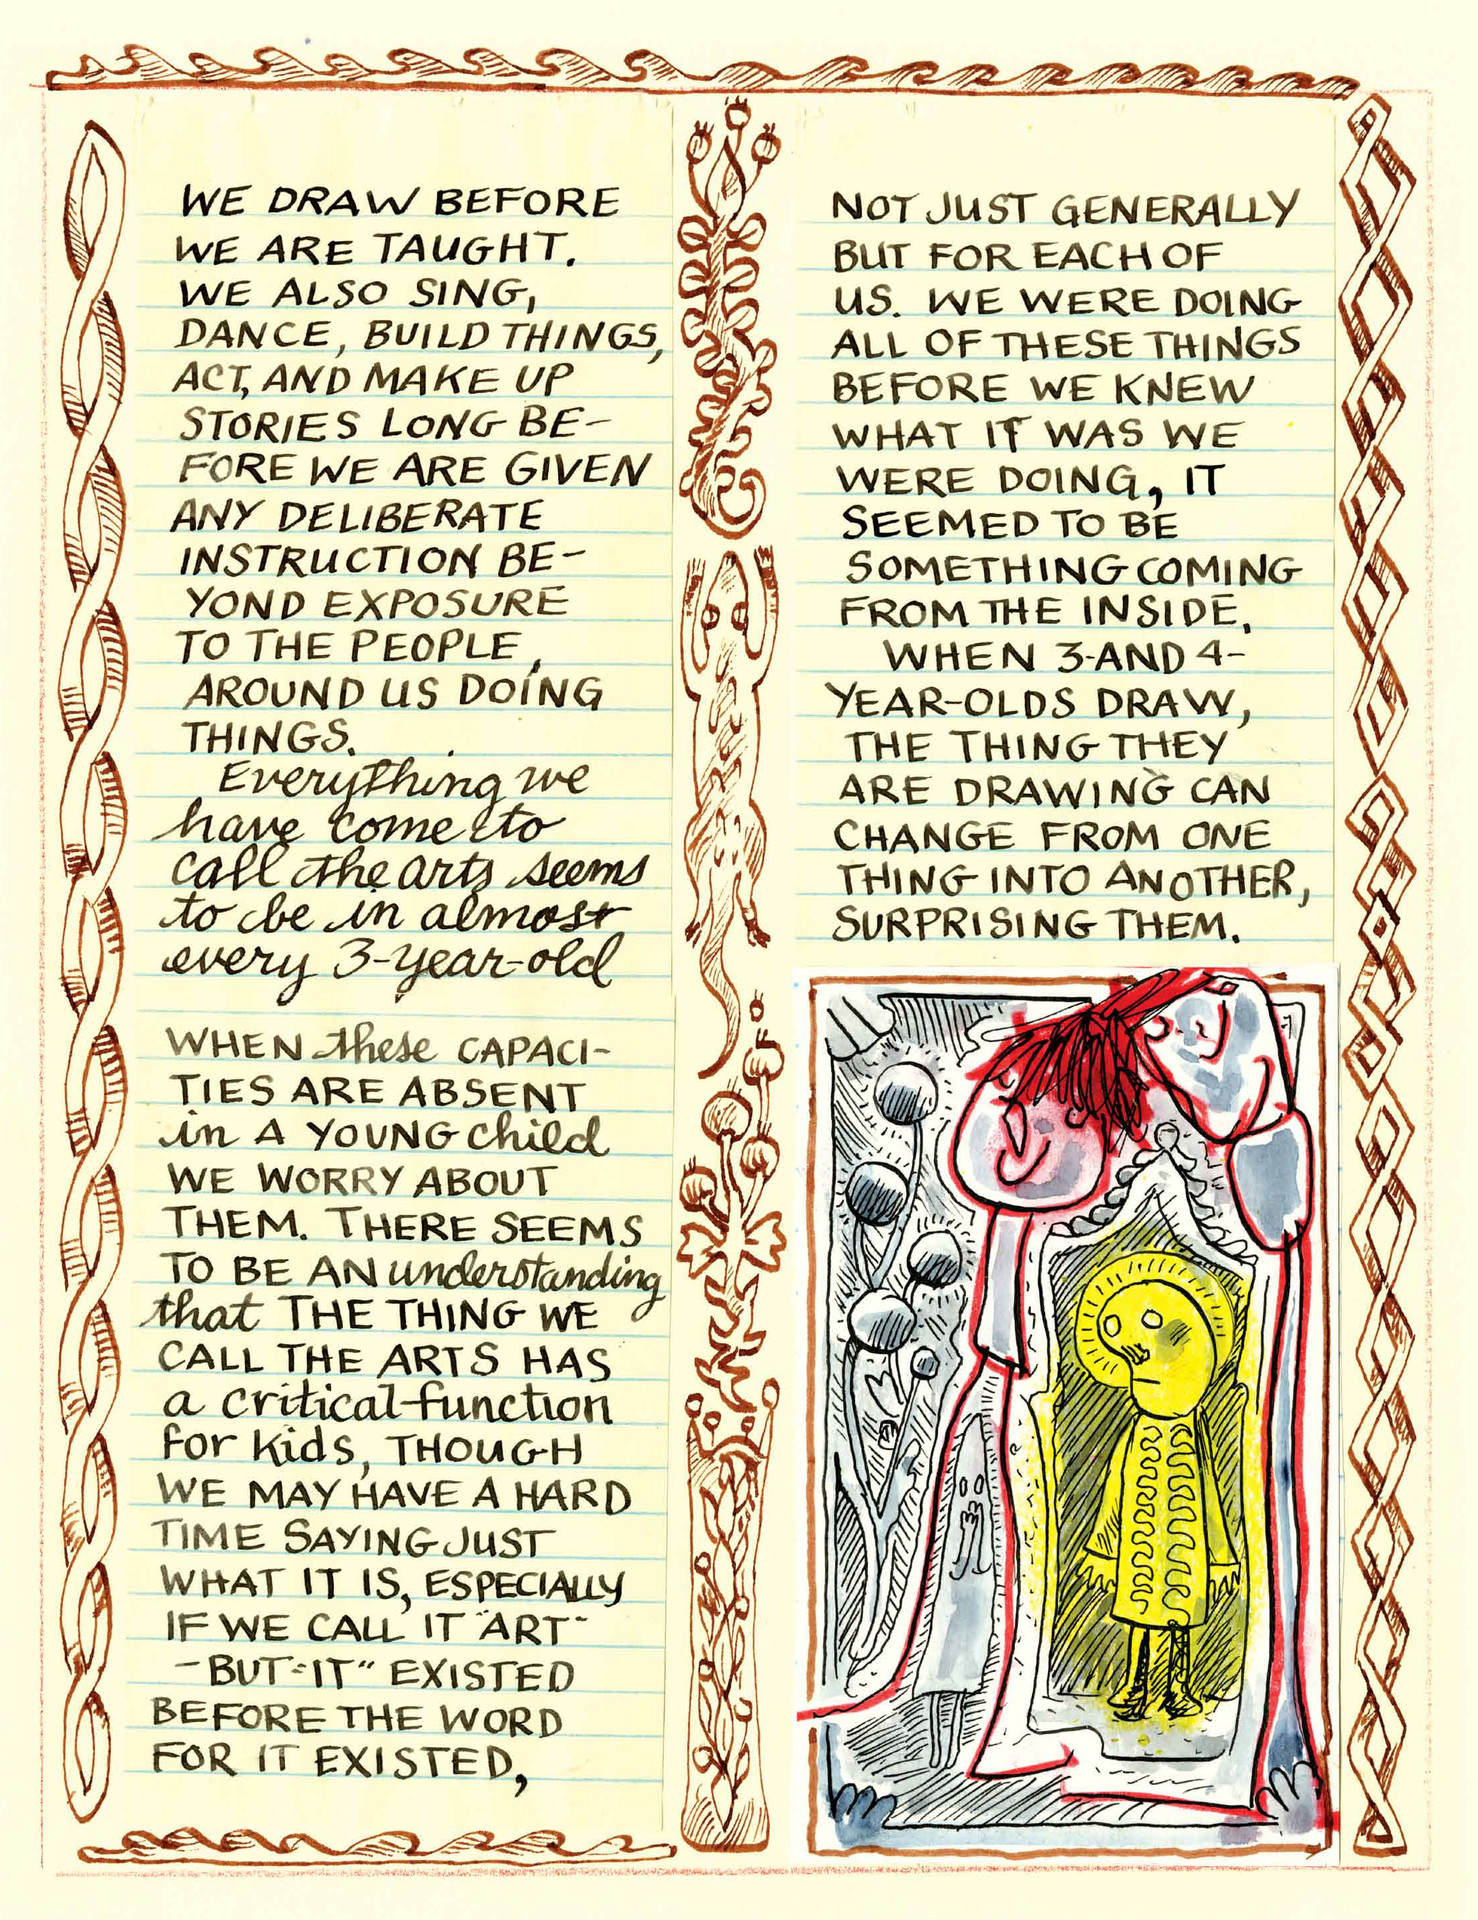 WE DRAW BEFORE
WE ARE TAUGHT.
WE ALSO SING,
DANCE, BUILD THINGS,
ACT, AND MAKE UP
STORIES LONG BE-
FORE WE ARE GIVEN
ANY DELIBERATE
INSTRUCTION BE-
YOND EXPOSURE
TO THE PEOPLE,
AROUND US DOING
THINGS.
Everything we
have come to
call the arts seems
to be in almost
every 3-year-old
WHEN these CAPACI-
TIES ARE ABSENT
in A YOUNG child
WE WORRY ABOUT
THEM. THERE SEEMS
TO BE AN understanding
that THE THING WE
CALL THE ARTS HAS
a critical function
for kids, THOUGH
WE MAY HAVE A HARD
TIME SAYING JUST
WHAT IT IS, ESPECIALLY
IF WE CALL IT "ART"
-BUT "IT" EXISTED
BEFORE THE WORD
FOR IT EXISTED,
NOT JUST GENERALLY
BUT FOR EACH OF
US. WE WERE DOING
ALL OF THESE THINGS
BEFORE WE KNEW
WHAT IT WAS WE
WERE DOING, IT
SEEMED TO BE
SOMETHING COMING
FROM THE INSIDE.
WHEN 3-AND 4-
YEAR-OLDS DRAW,
THE THING THEY
ARE DRAWING CAN
CHANGE FROM ONE
THING INTO ANOTHER,
SURPRISING THEM.